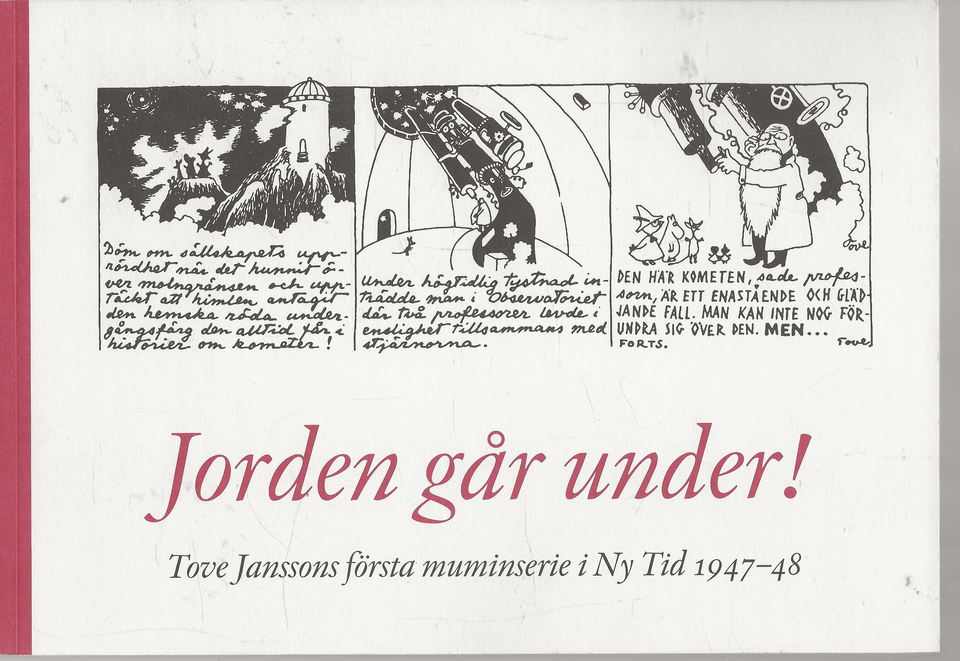 Döm om sällskapets upp-
rördhet när det hunnit ö-
ver molngränsen och upp-
täckt att himlen antagit
den hemska röda under-
gångsfärg den alltid får i
historier om kometer!
Under högtidlig tystnad in-
trädde man i Observatoriet
där två professorer levde i
enslighet tillsammans med
stjärnorna.
Tove
DEN HÄR KOMETEN, sade profes-
sorn, ÄR ETT ENASTÅENDE OCH GLÄD-
JANDE FALL. MAN KAN INTE NOG FÖR-
UNDRA SIG ÖVER DEN. MEN...
FORTS. Tove
Jorden går under!
Tove Janssons första muminserie i Ny Tid 1947–48